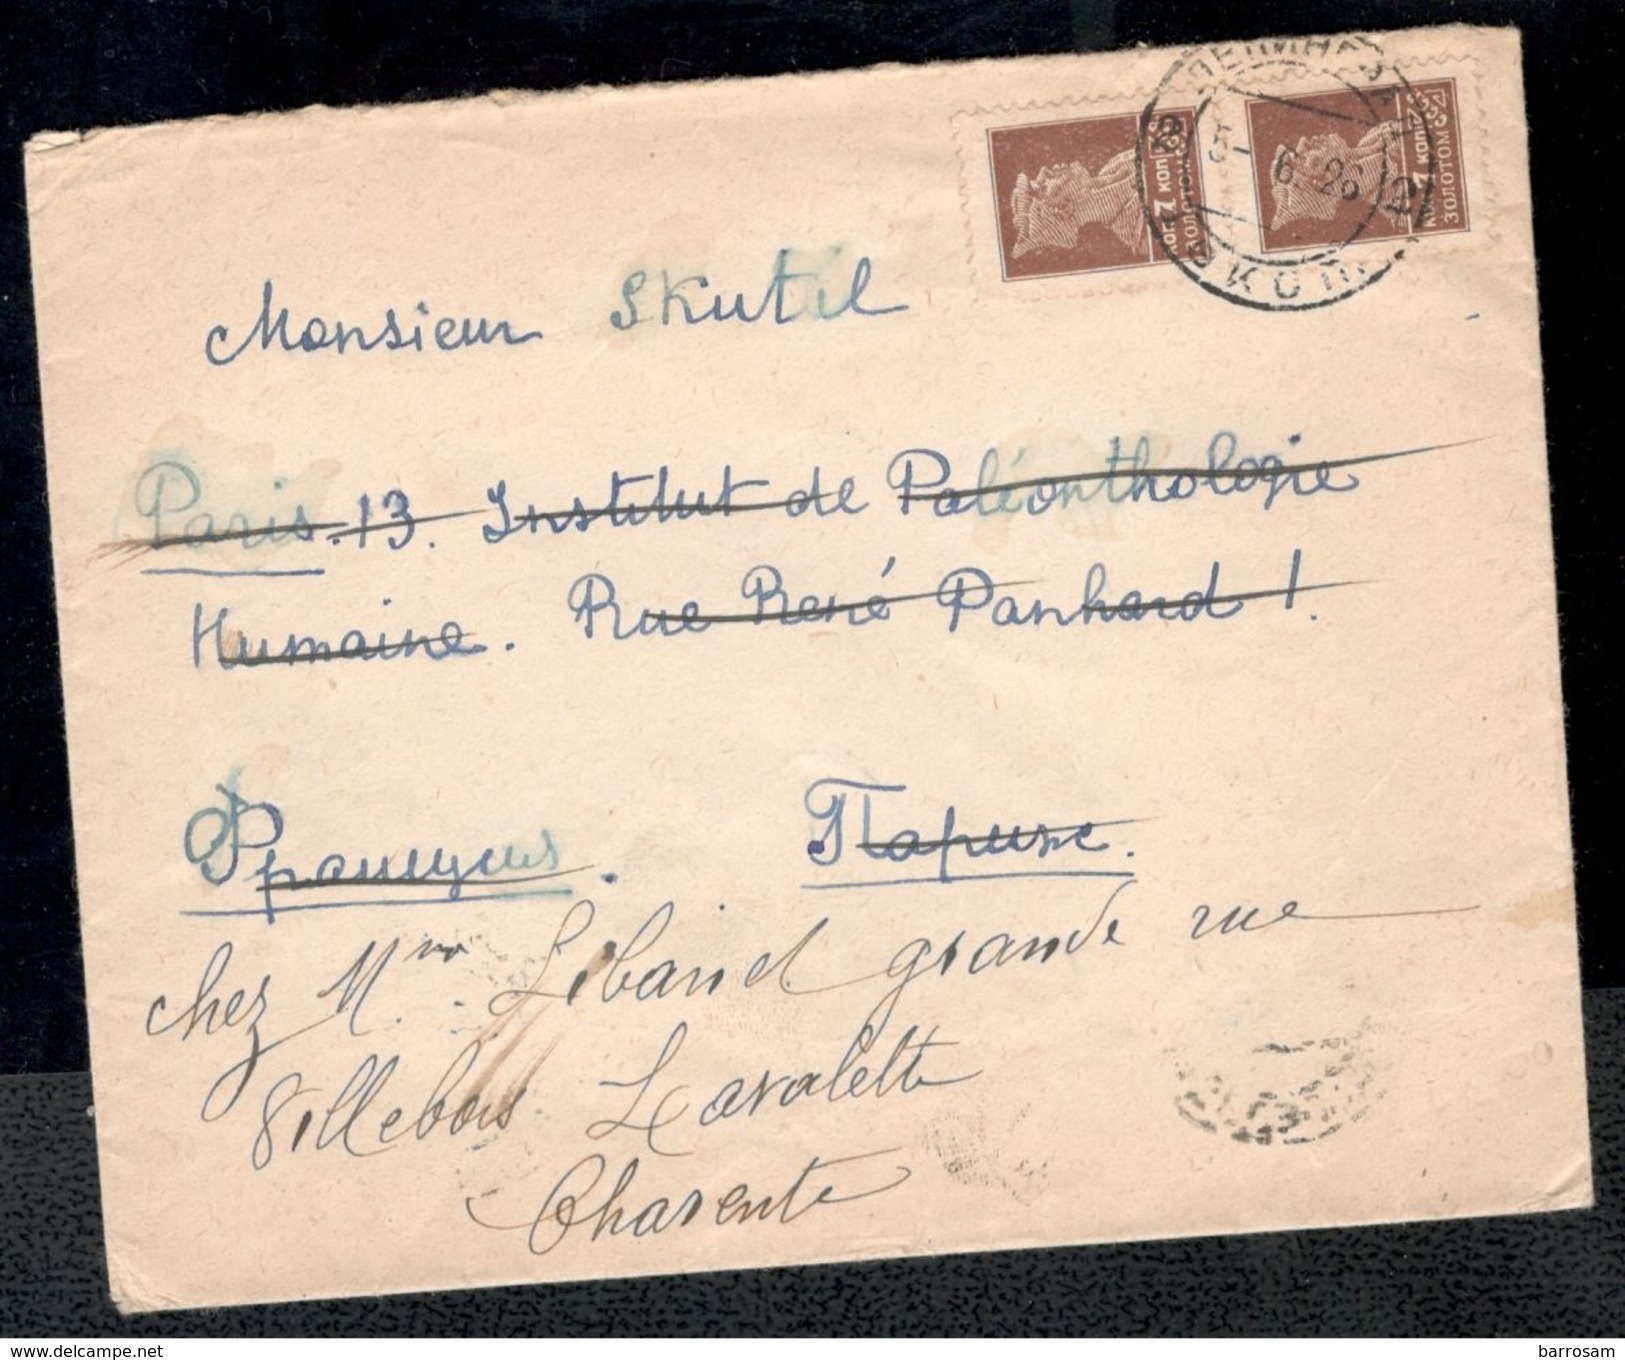 7 КОП
ЗОЛОТОМ
7 КОП
ЗОЛОТОМ
6.26
Monsieur Skutil
Paris.13. Institut de Paléonthologie
Humaine. Rue René Panhard 1.
Франция. Париж.
chez Mme Liband grande rue
Villebois Lavalette
Charente
delcampe.net
barrosam